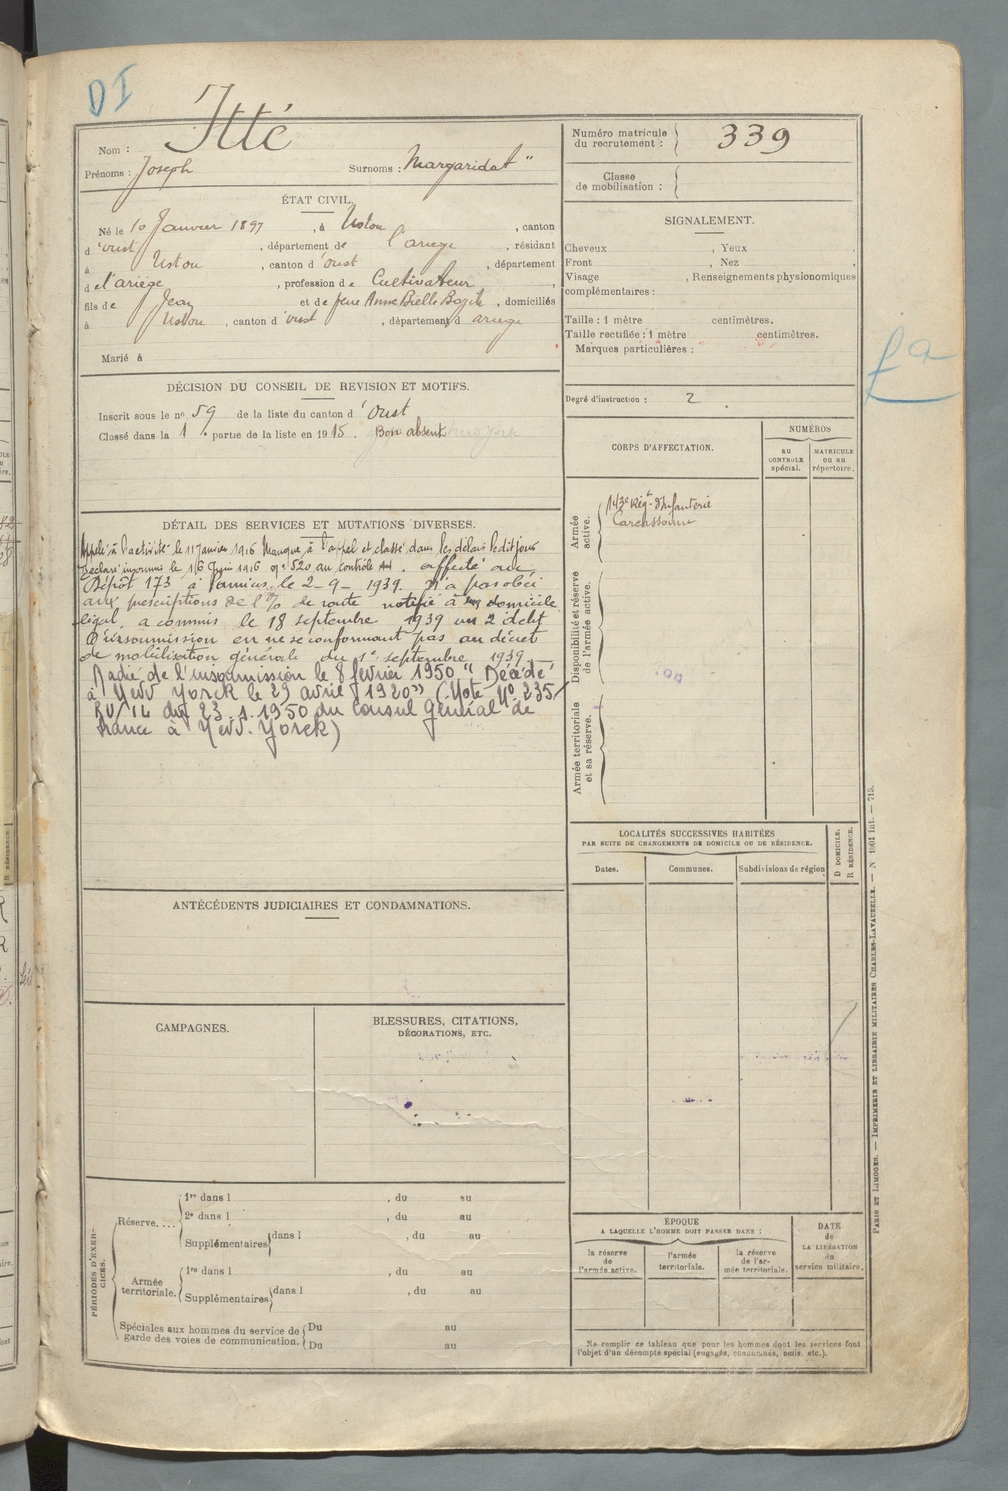 DI
Nom : Itté
Prénoms : Joseph Surnoms : Margaridat "
ÉTAT CIVIL.
Né le 10 Janvier 1897, à Ustou, canton
d'oust, département de l'ariege, résidant
à Ustou, canton d'oust, département
d el'ariège, profession de Cultivateur,
fils de Jean et de feue Anne Bielle, domiciliés
à Ustou, canton d'oust, département d ariege
Marié à
DÉCISION DU CONSEIL DE REVISION ET MOTIFS.
Inscrit sous le n° 59 de la liste du canton d'Oust
Classé dans la 1 e partie de la liste en 1915. Bon absent
DÉTAIL DES SERVICES ET MUTATIONS DIVERSES.
Appelé à l'activité le 11 Janvier 1916 Manque à l'appel et classé dans les délais ledit jour
Déclaré insoumis le 16 Juin 1916 n° 520 au contrôle. affecté au
Dépôt 173 à Pamiers le 2-9-1939. N'a pas obéi
aux prescriptions de l'o/ de route notifié à domicile
légal, a commis le 18 septembre 1939 un 2e délit
d'insoumission en ne se conformant pas au décret
de mobilisation générale du 1er septembre 1939
Radié de l'insoumission le 8 février 1950 "Décédé
à New Yorck le 29 avril 1920" (Note N° 235/
RU/14 du 23.1.1950 du Consul Général de
France à New-Yorck)
ANTÉCÉDENTS JUDICIAIRES ET CONDAMNATIONS.
CAMPAGNES.
BLESSURES, CITATIONS,
DÉCORATIONS, ETC.
PÉRIODES D'EXERCICES.
Réserve.... 1re dans l , du au
2e dans l , du au
Supplémentaires dans l , du au
Armée territoriale. 1re dans l , du au
Supplémentaires dans l , du au
Spéciales aux hommes du service de Du au
garde des voies de communication. Du au
Numéro matricule
du recrutement : 339
Classe
de mobilisation :
SIGNALEMENT.
Cheveux , Yeux ,
Front , Nez ,
Visage , Renseignements physionomiques
complémentaires :
Taille : 1 mètre centimètres.
Taille rectifiée : 1 mètre centimètres.
Marques particulières :
Degré d'instruction : 2
CORPS D'AFFECTATION.
NUMÉROS
au
CONTROLE
spécial.
MATRICULE
ou au
répertoire.
Armée
active.
143e Régt d'Infanterie
Carcassonne
Disponibilité et réserve
de l'armée active.
Armée territoriale
et sa réserve.
LOCALITÉS SUCCESSIVES HABITÉES
PAR SUITE DE CHANGEMENTS DE DOMICILE OU DE RÉSIDENCE.
Dates. Communes. Subdivisions de région
D DOMICILE.
R RÉSIDENCE.
ÉPOQUE
A LAQUELLE L'HOMME DOIT PASSER DANS :
la réserve
de
l'armée active.
l'armée
territoriale.
la réserve
de l'ar-
mée territoriale.
DATE
de
LA LIBÉRATION
du
service militaire.
Ne remplir ce tableau que pour les hommes dont les services font
l'objet d'un décompte spécial (engagés, condamnés, omis. etc.).
PARIS ET LIMOGES. — IMPRIMERIE ET LIBRAIRIE MILITAIRES CHARLES-LAVAUZELLE. — N 1001 int. — 715.